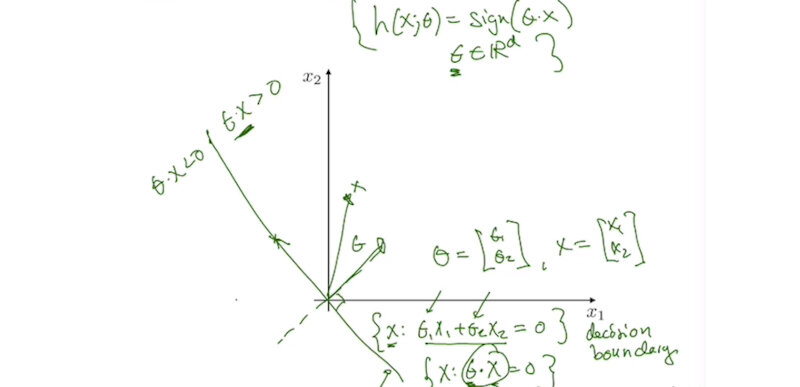 { h(x;θ) = sign(θ·x)
θ ∈ ℝᵈ }
x₂
θ·x > 0
θ·x < 0
x
θ
θ = [θ₁ θ₂], x = [x₁ x₂]
x₁
{x: θ₁x₁ + θ₂x₂ = 0} decision
boundary
{x: θ·x = 0}